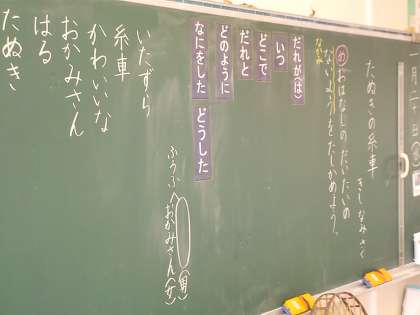 たぬきの糸車
きしなみさく
め おはなしのだいたいの
ないようをたしかめよう。
なか
だれが(は)
いつ
どこで
だれと
どのように
なにをした
どうした
ふうふ
おかみさん(女)
(男)
いたずら
糸車
かわいいな
おかみさん
はる
たぬき